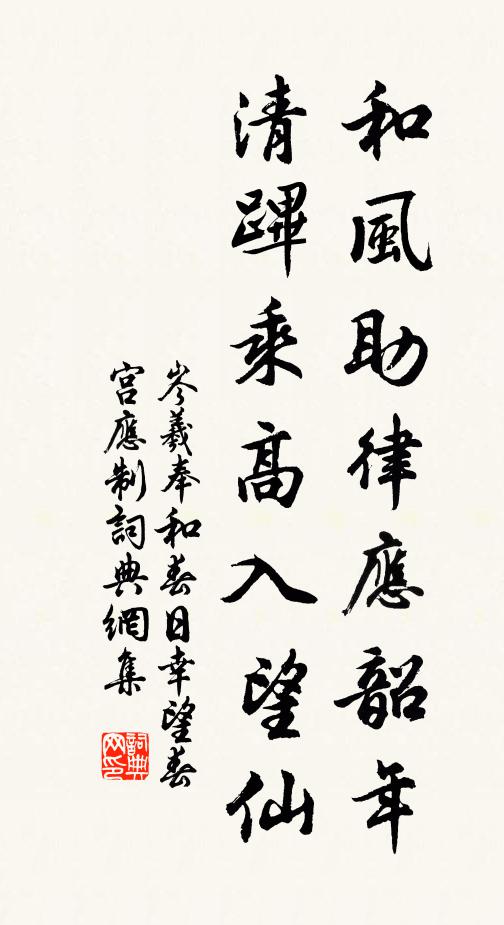 和風助律應韶年
清蹕乘高入望仙
岑羲奉和春日幸望春
宮應制詞典網集
詞典網印